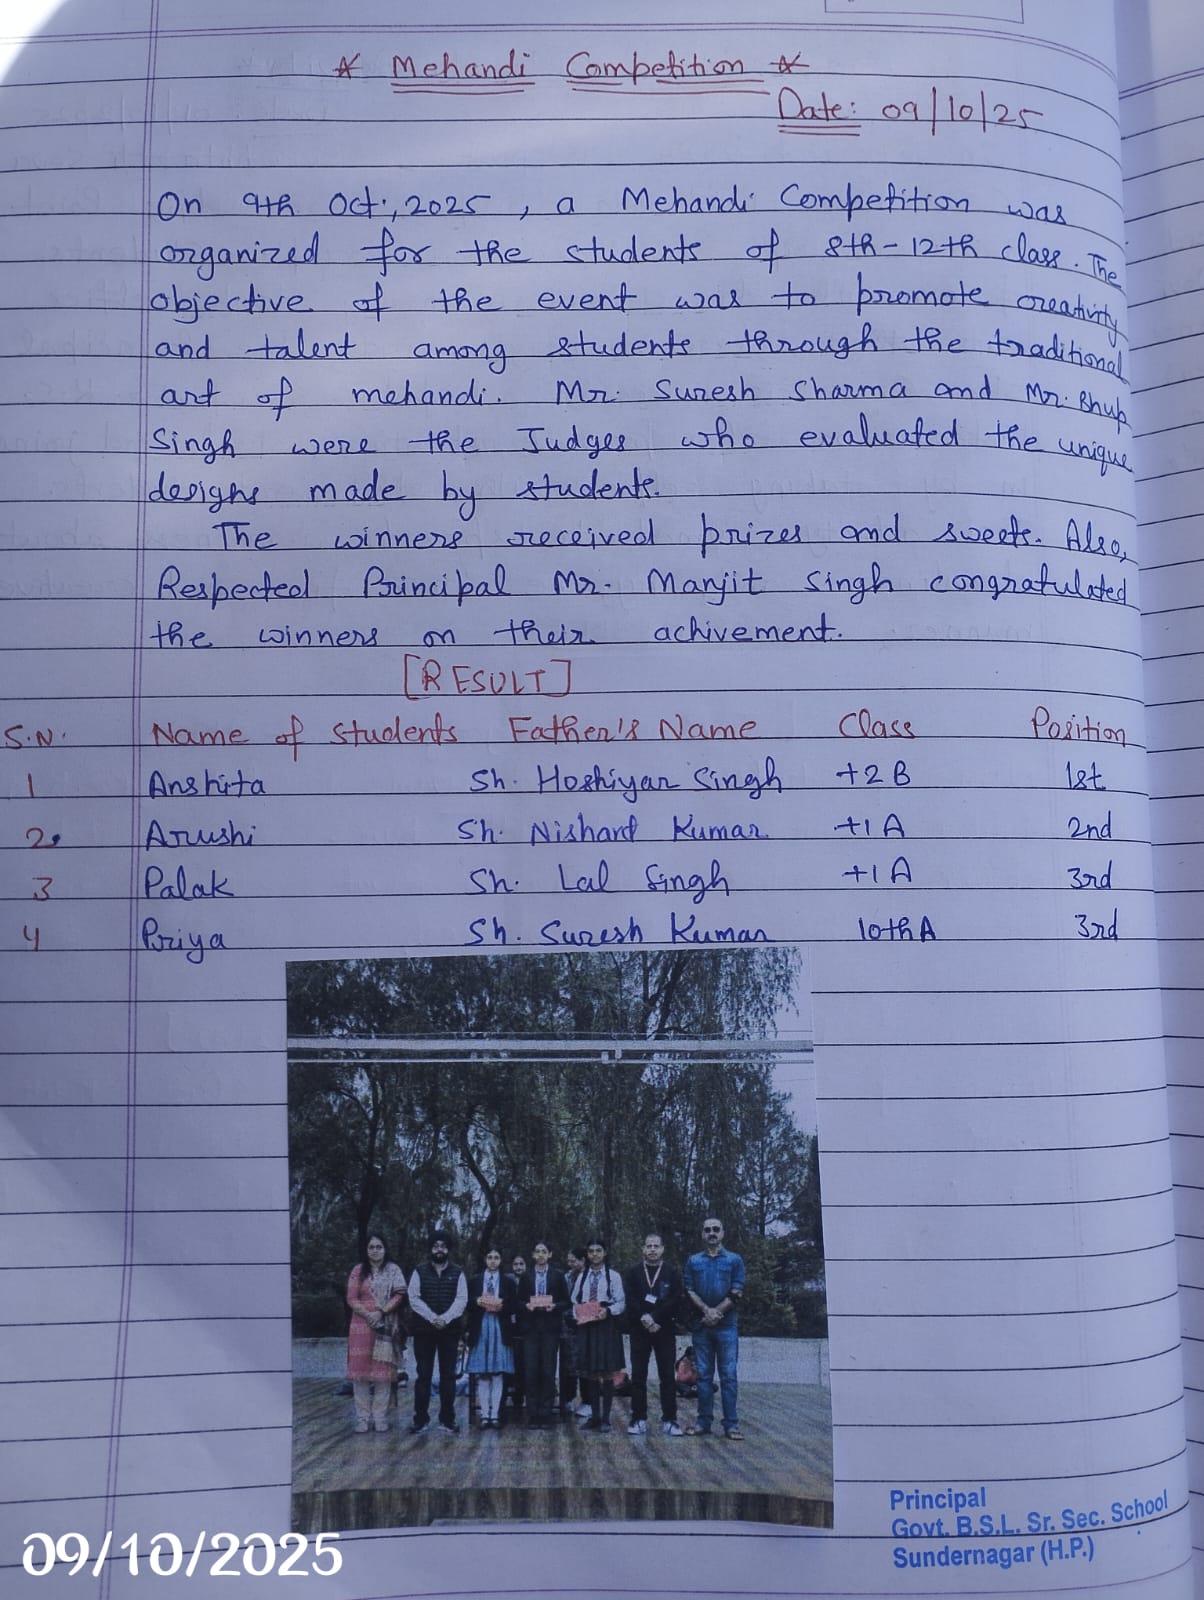 * Mehandi Competition *
Date: 09/10/25
On 9th Oct., 2025, a Mehandi Competition was
organized for the students of 8th-12th class. The
objective of the event was to promote creativity
and talent among students through the traditional
art of mehandi. Mr. Suresh Sharma and Mr. Bhup
Singh were the Judges who evaluated the unique
designs made by students.
The winners received prizes and sweets. Also,
Respected Principal Mr. Manjit Singh congratulated
the winners on their achivement.
[RESULT]
S.N. Name of Students Father's Name Class Position
1 Anshita Sh. Hoshiyar Singh +2 B 1st
2. Arushi Sh. Nishant Kumar +1 A 2nd
3 Palak Sh. Lal Singh +1 A 3rd
4 Priya Sh. Suresh Kumar 10th A 3rd
Principal
Govt. B.S.L. Sr. Sec. School
Sundernagar (H.P.)
09/10/2025